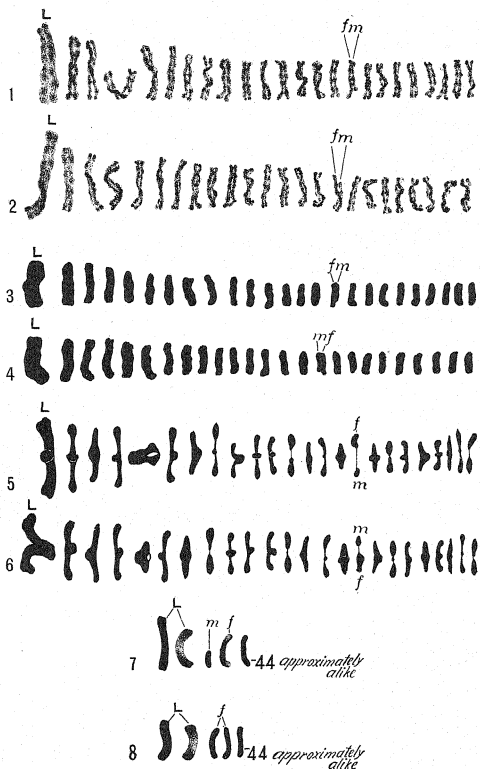 L
fm
1
L
fm
2
L
fm
3
L
mf
4
L
f
5
m
L
m
6
f
L m f
7 -44 approximately alike
L f
8 -44 approximately alike